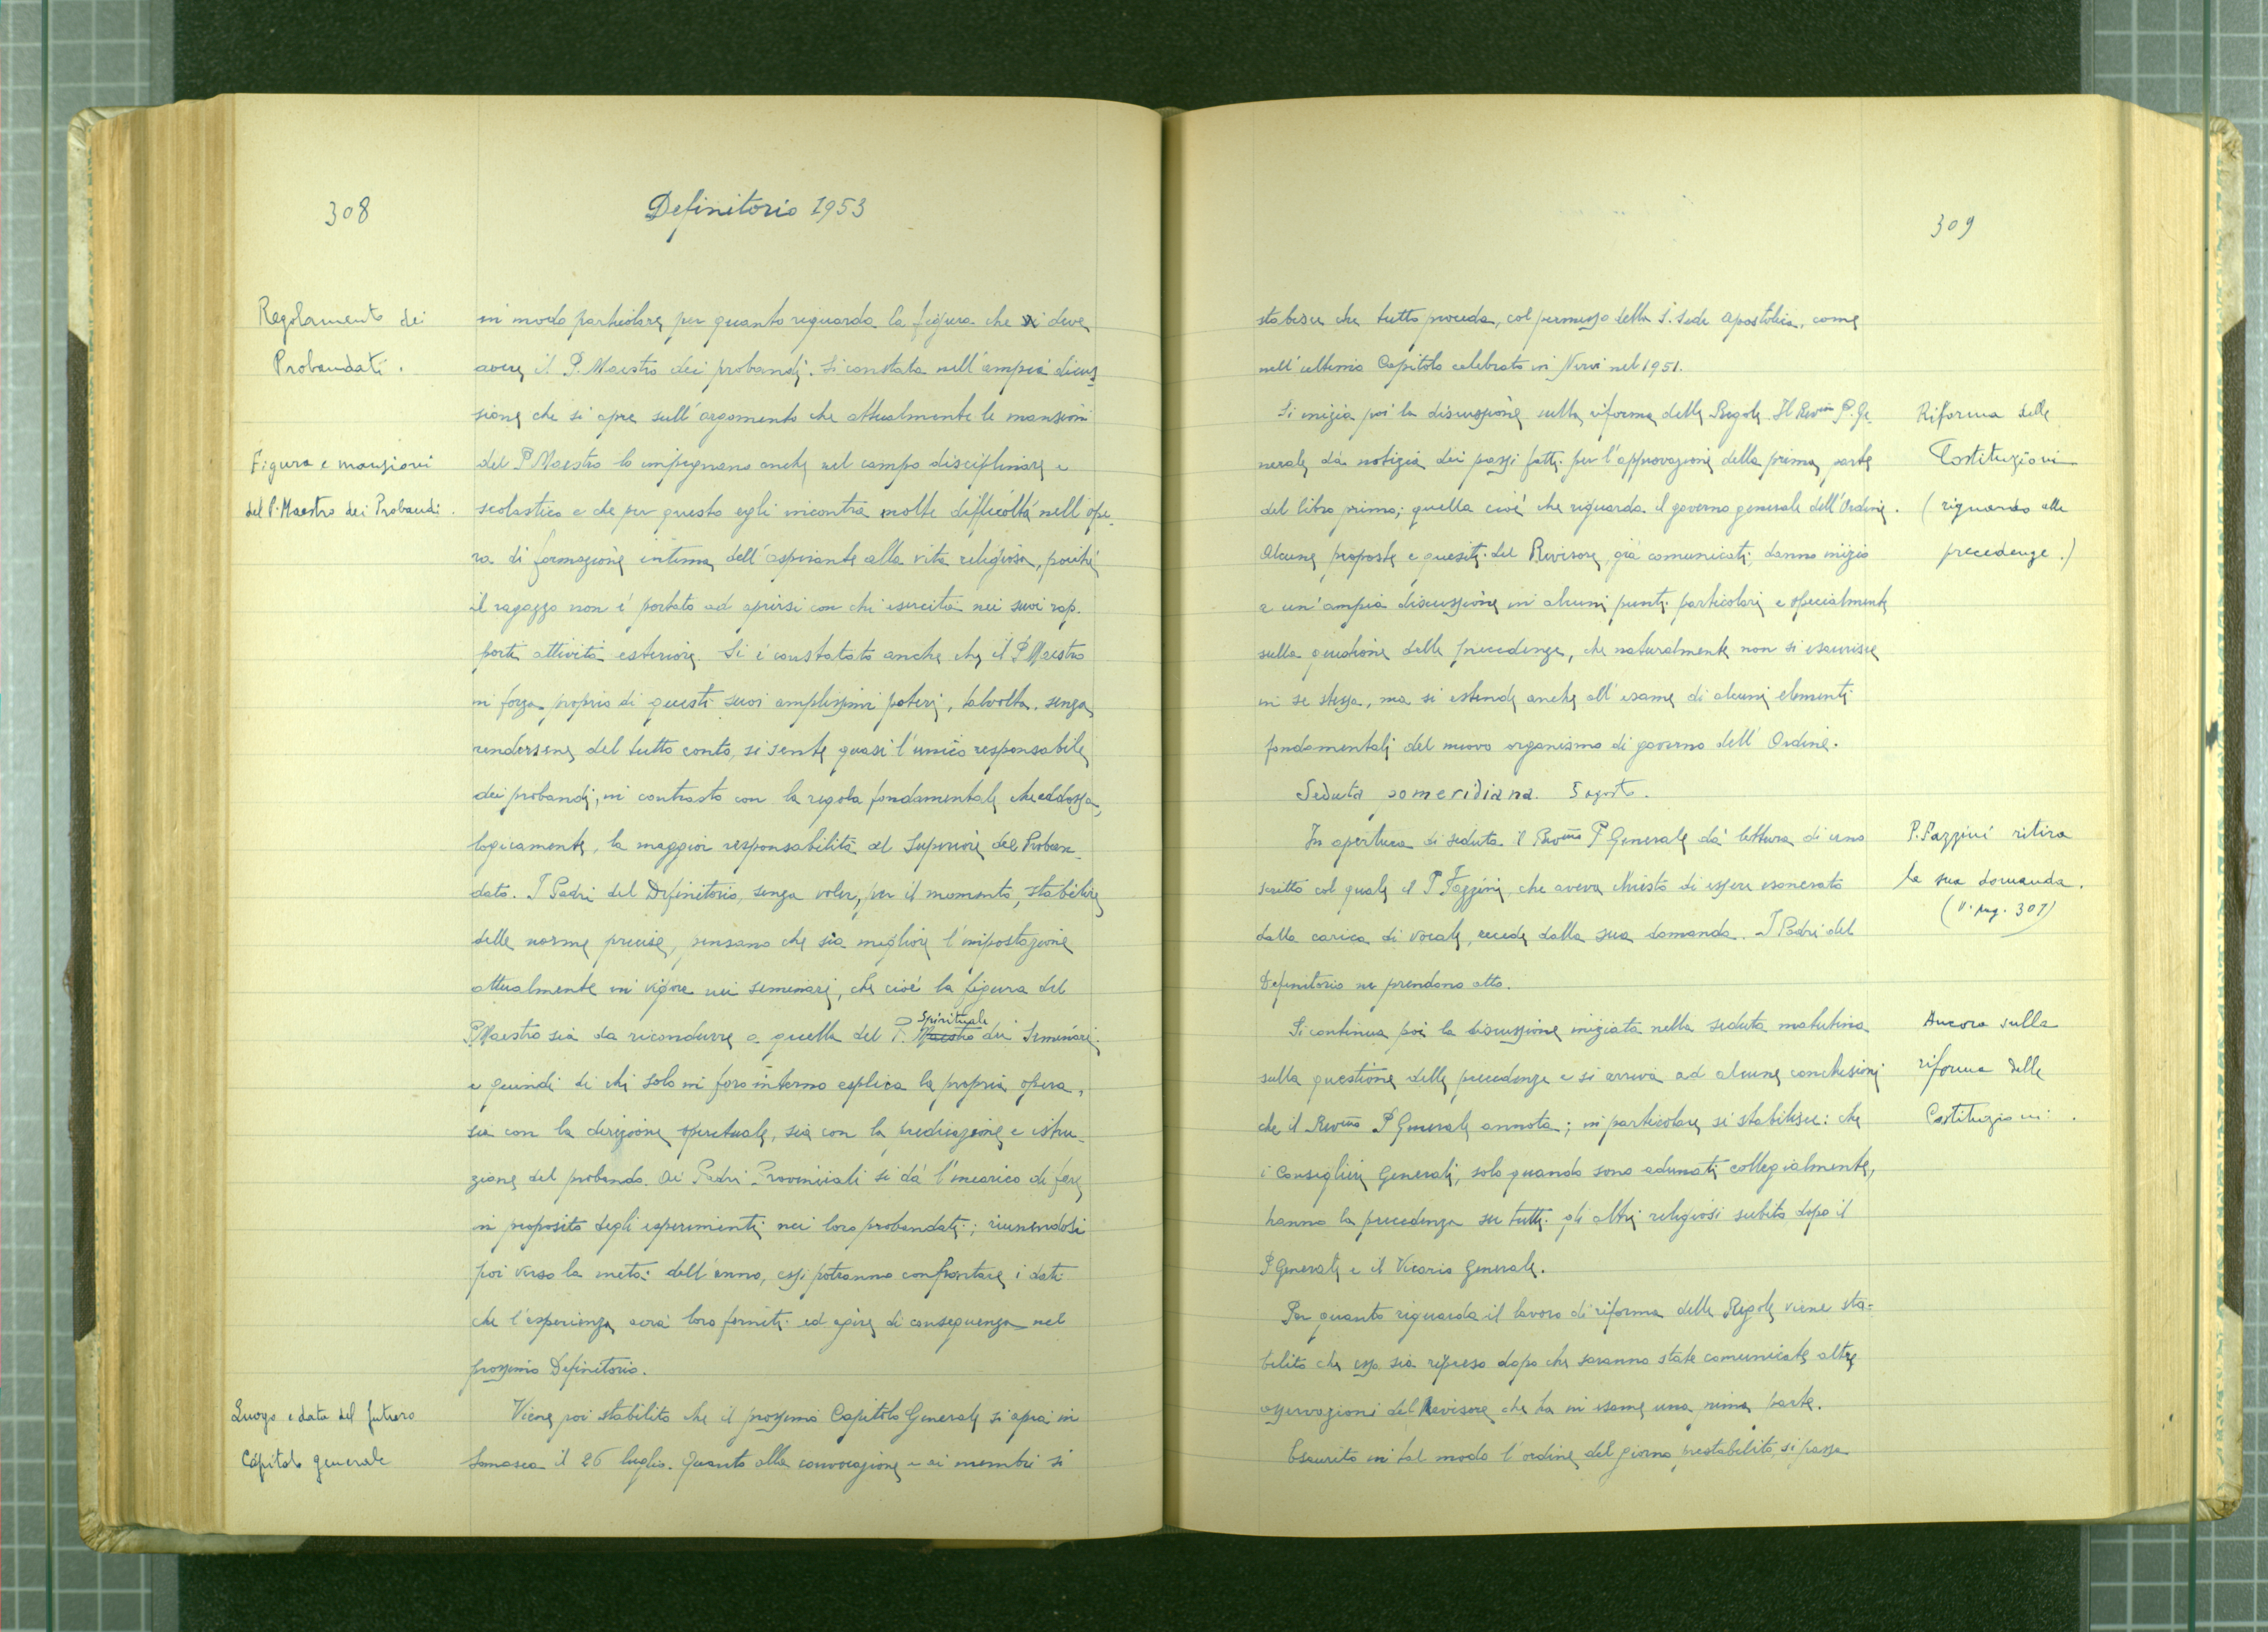 308
Definitorio 1953
Regolamento dei
Probandati.
in modo particolare per quanto riguarda la figura che si deve
avere il P. Maestro dei probandi. Si constata nell'ampia discus-
sione che si apre sull'argomento che attualmente le mansioni
Figura e mansioni
del P. Maestro dei Probandi.
del P. Maestro lo impegnano anche nel campo disciplinare e
scolastico e che per questo egli incontra molte difficoltà nell'ope-
ra di formazione intima dell'aspirante alla vita religiosa, poiché
il ragazzo non è portato ad aprirsi con chi esercita nei suoi rap-
porti attività esteriore. Si è constatato anche che il P. Maestro
in forza proprio di questi suoi amplissimi poteri, talvolta, senza
rendersene del tutto conto, si sente quasi l'unico responsabile
dei probandi, in contrasto con la regola fondamentale che addossa,
logicamente, la maggior responsabilità al Superiore del Proban-
dato. I Padri del Definitorio, senza voler, per il momento, stabilire
delle norme precise, pensano che sia migliore l'impostazione
attualmente in vigore nei seminari, che cioè la figura del
P. Maestro sia da ricondurre a quella del P. Maestro Spirituale dei Seminari
e quindi di chi solo in foro interno esplica la propria opera,
sia con la direzione spirituale, sia con la predicazione e istru-
zione del probando. Ai Padri Provinciali si dà l'incarico di fare
in proposito degli esperimenti nei loro probandati; riunendosi
poi verso la metà dell'anno, essi potranno confrontare i dati
che l'esperienza avrà loro forniti ed agire di conseguenza nel
prossimo Definitorio.
Luogo e data del futuro
Capitolo generale
Viene poi stabilito che il prossimo Capitolo Generale si apra in
Somasca il 26 luglio. Quanto alla convocazione e ai membri si
309
stabilisce che tutto proceda, col permesso della S. Sede Apostolica, come
nell'ultimo Capitolo celebrato in Nervi nel 1951.
Riforma delle
Costituzioni
(riguardo alle
precedenze.)
Si inizia poi la discussione sulla riforma delle Regole. Il Rev.mo P. Ge-
nerale dà notizia dei passi fatti per l'approvazione della prima parte
del libro primo; quella cioè che riguarda il governo generale dell'Ordine.
Alcune proposte e quesiti del Revisore, già comunicati, danno inizio
a un'ampia discussione in alcuni punti particolari e specialmente
sulla questione delle precedenze, che naturalmente non si esaurisce
in se stessa, ma si estende anche all'esame di alcuni elementi
fondamentali del nuovo organismo di governo dell'Ordine.
Seduta pomeridiana. 5 agosto.
P. Fazzini ritira
la sua domanda.
(v. pag. 307)
In apertura di seduta il Rev.mo P. Generale dà lettura di uno
scritto col quale il P. Fazzini, che aveva chiesto di essere esonerato
dalla carica di vocale, recede dalla sua domanda. I Padri del
Definitorio ne prendono atto.
Ancora sulla
riforma delle
Costituzioni.
Si continua poi la discussione iniziata nella seduta mattutina
sulla questione delle precedenze e si arriva ad alcune conclusioni
che il Rev.mo P. Generale annota; in particolare si stabilisce: che
i Consiglieri Generali, solo quando sono adunati collegialmente,
hanno la precedenza su tutti gli altri religiosi subito dopo il
P. Generale e il Vicario Generale.
Per quanto riguarda il lavoro di riforma delle Regole viene sta-
bilito che esso sia ripreso dopo che saranno state comunicate altre
osservazioni del Revisore che ha in esame una prima parte.
Esaurito in tal modo l'ordine del giorno prestabilito, si passa